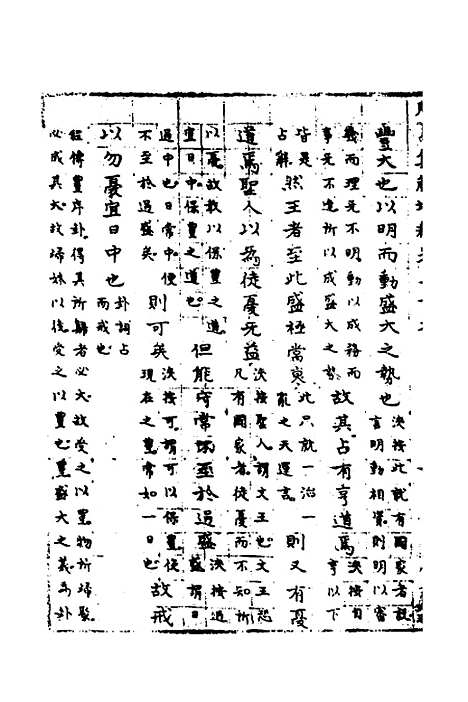 豐大也以明而動盛大之勢也
浹按此就有國家者說
言明動相資則明以審
幾而理无不明動以成務而
事无不遂所以成盛大之勢
故其占有亨道焉
浹按自
亨以下
皆是
占辭
然王者至此盛極當衰
此只就一治一
亂之天運言
則又有憂
道焉聖人以為徒憂无益
浹按聖人謂文王也文王恐
凡有國家者徒憂而不知所
以憂故教以保豐之道
宜日中保豐之道也
但能守常不至於過盛
浹按過
盛謂日
過中也日常中便
不至於過盛矣
則可矣
浹按可謂可以保豐使
現在之豐常如一日也
故戒
以勿憂宜日中也
卦詞占
而戒也
經傳豐序卦得其所歸者必大故受之以豐物所歸聚
必成其大故歸妹以後受之以豐也豐盛大之義為卦